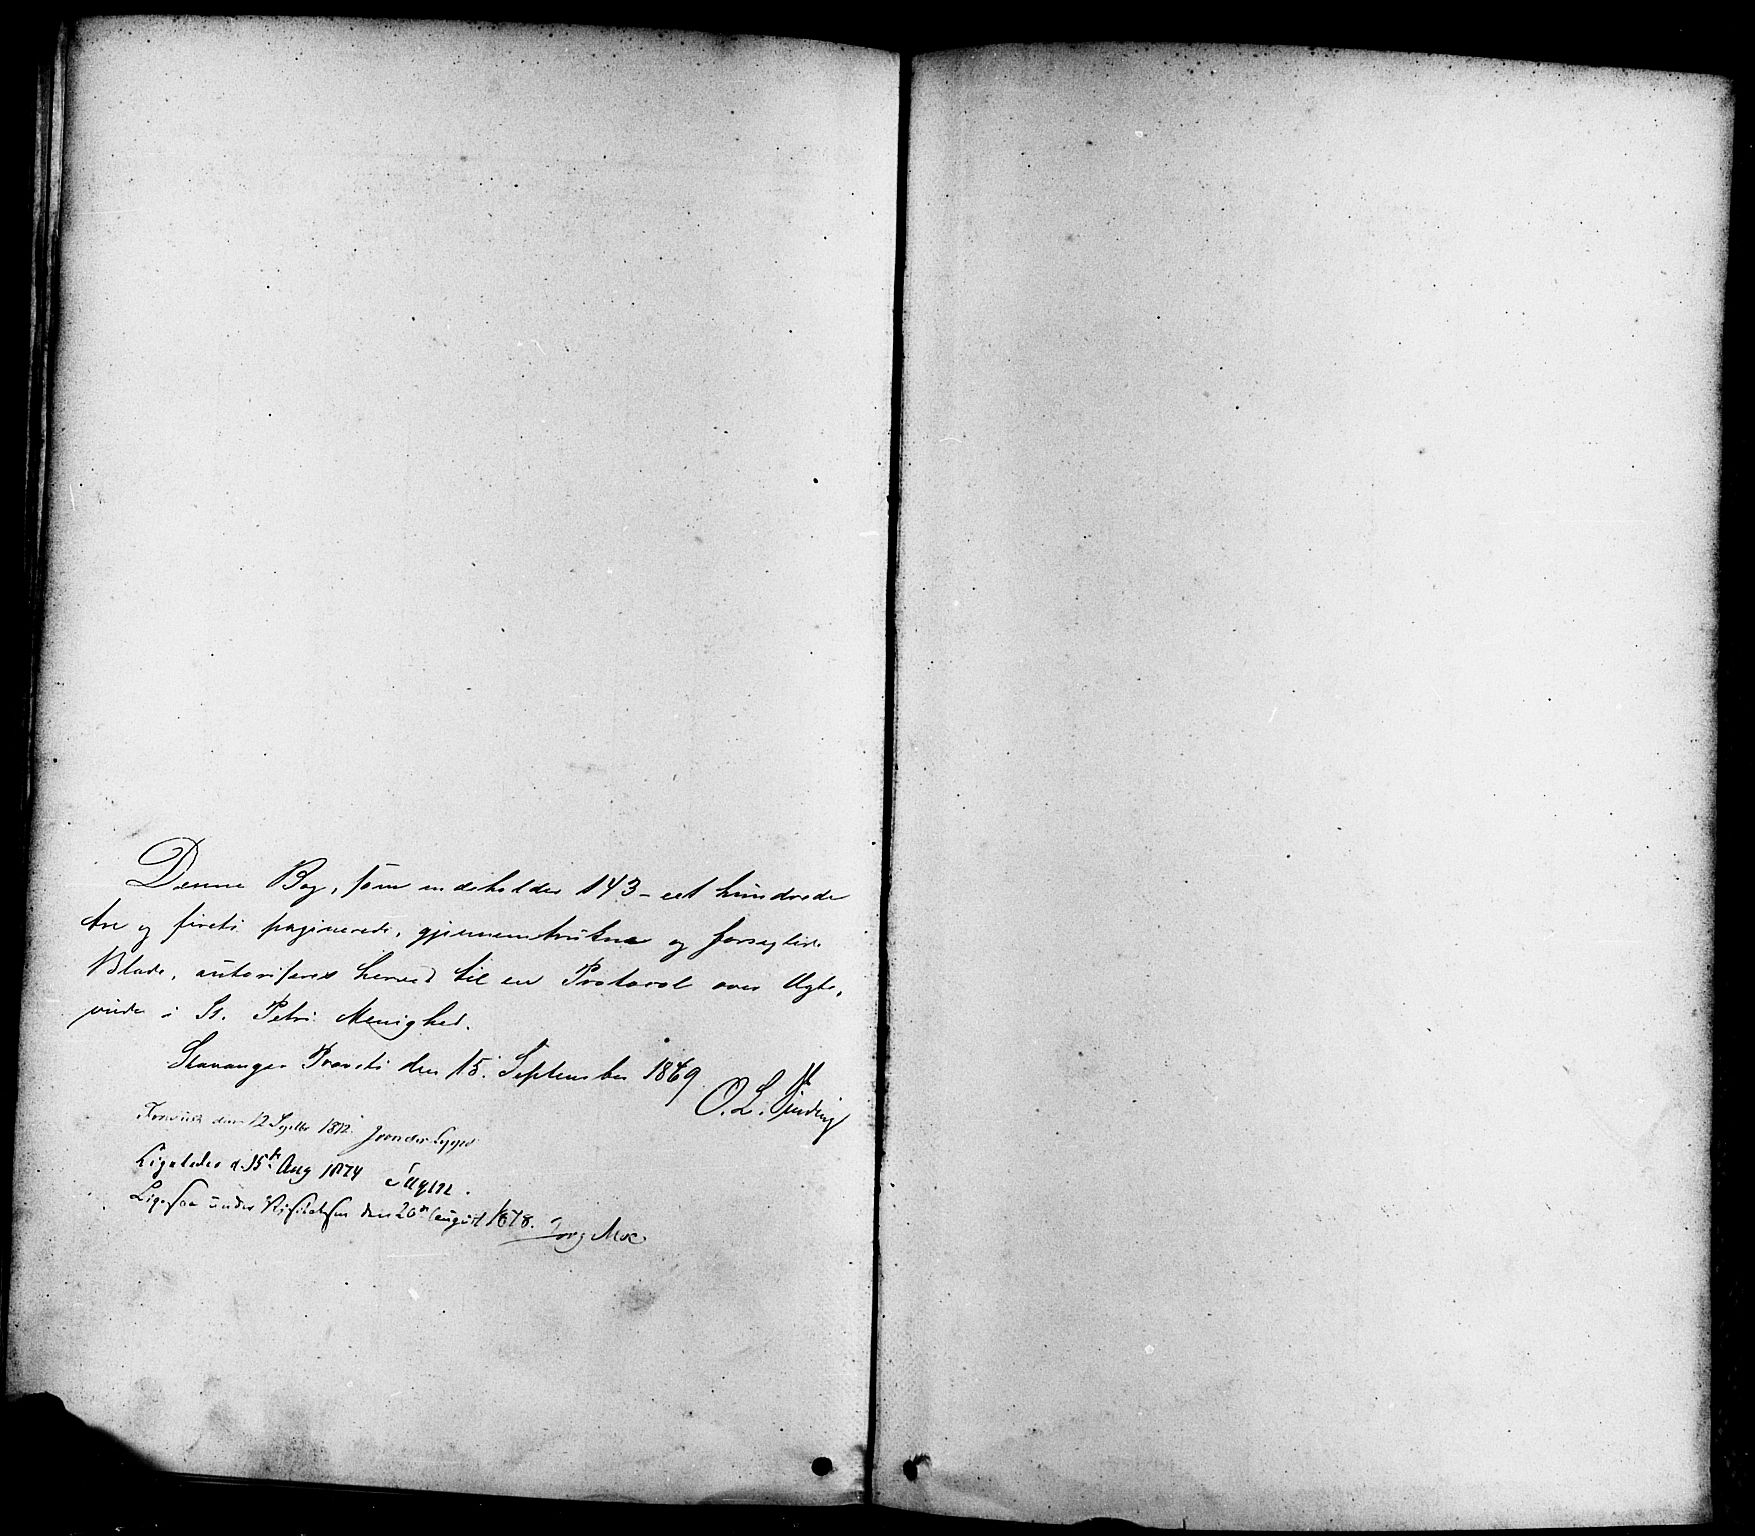 Denne Bog, som indeholder 143 - eet hundrede
tre og fireti paginerede, gjennemtrukne og forseglede
Blade, autoriseres herved til en Protocol over Ægte-
viede i St. Petri Menighed.
Stavanger Provsti den 15. September 1869.
O. L. Sinding
den 12 Septbr 1872.
Ligeledes d. 15de Aug 1874
Ligesaa under Visitatsen den 20de August 1878. Jørg Moe